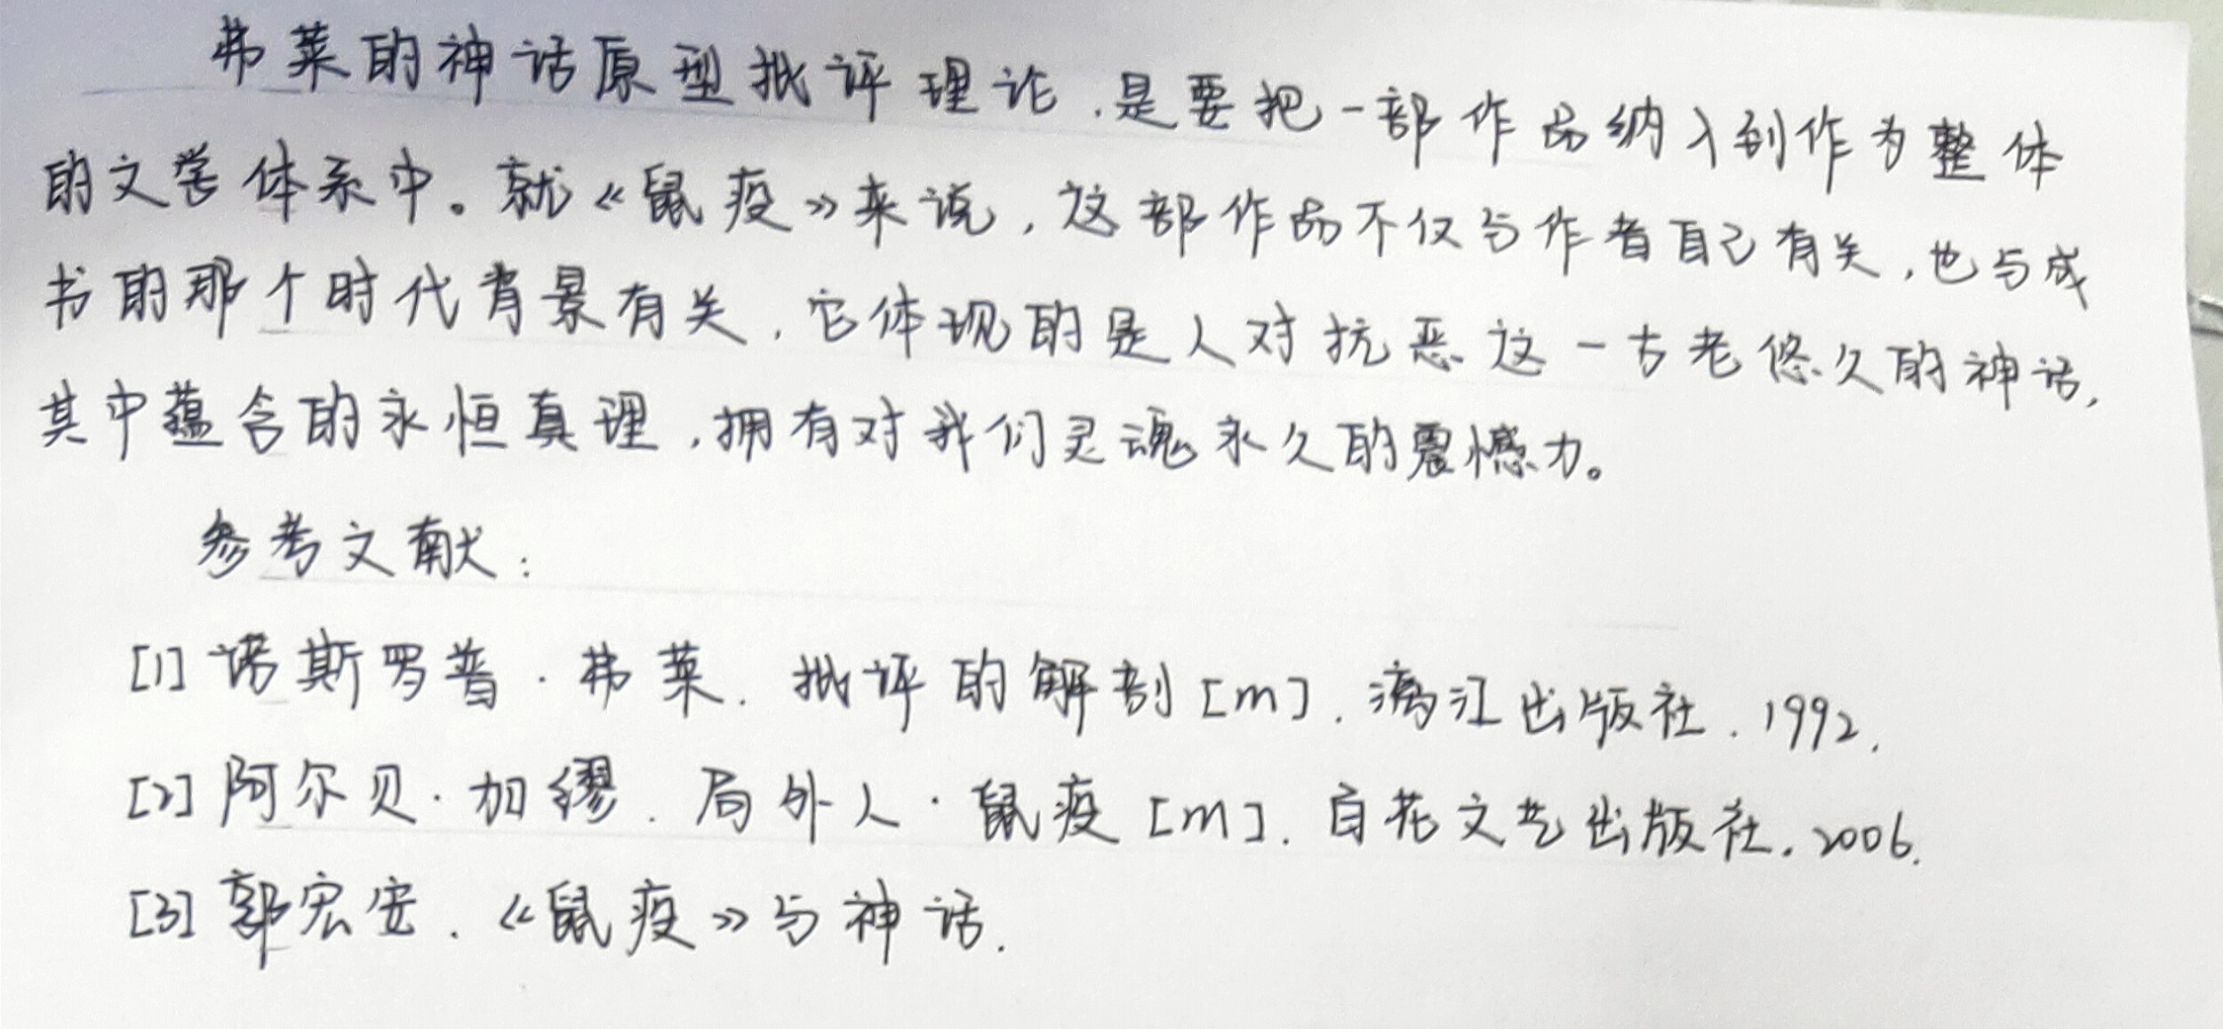 弗莱的神话原型批评理论，是要把一部作品纳入到作为整体
的文学体系中。就《鼠疫》来说，这部作品不仅与作者自己有关，也与成
书的那个时代背景有关，它体现的是人对抗恶这一古老悠久的神话，
其中蕴含的永恒真理，拥有对我们灵魂永久的震憾力。
参考文献：
[1] 诺斯罗普·弗莱．批评的解剖[m]．漓江出版社．1992．
[2] 阿尔贝·加缪．局外人·鼠疫[m]．百花文艺出版社．2006．
[3] 郭宏安．《鼠疫》与神话．